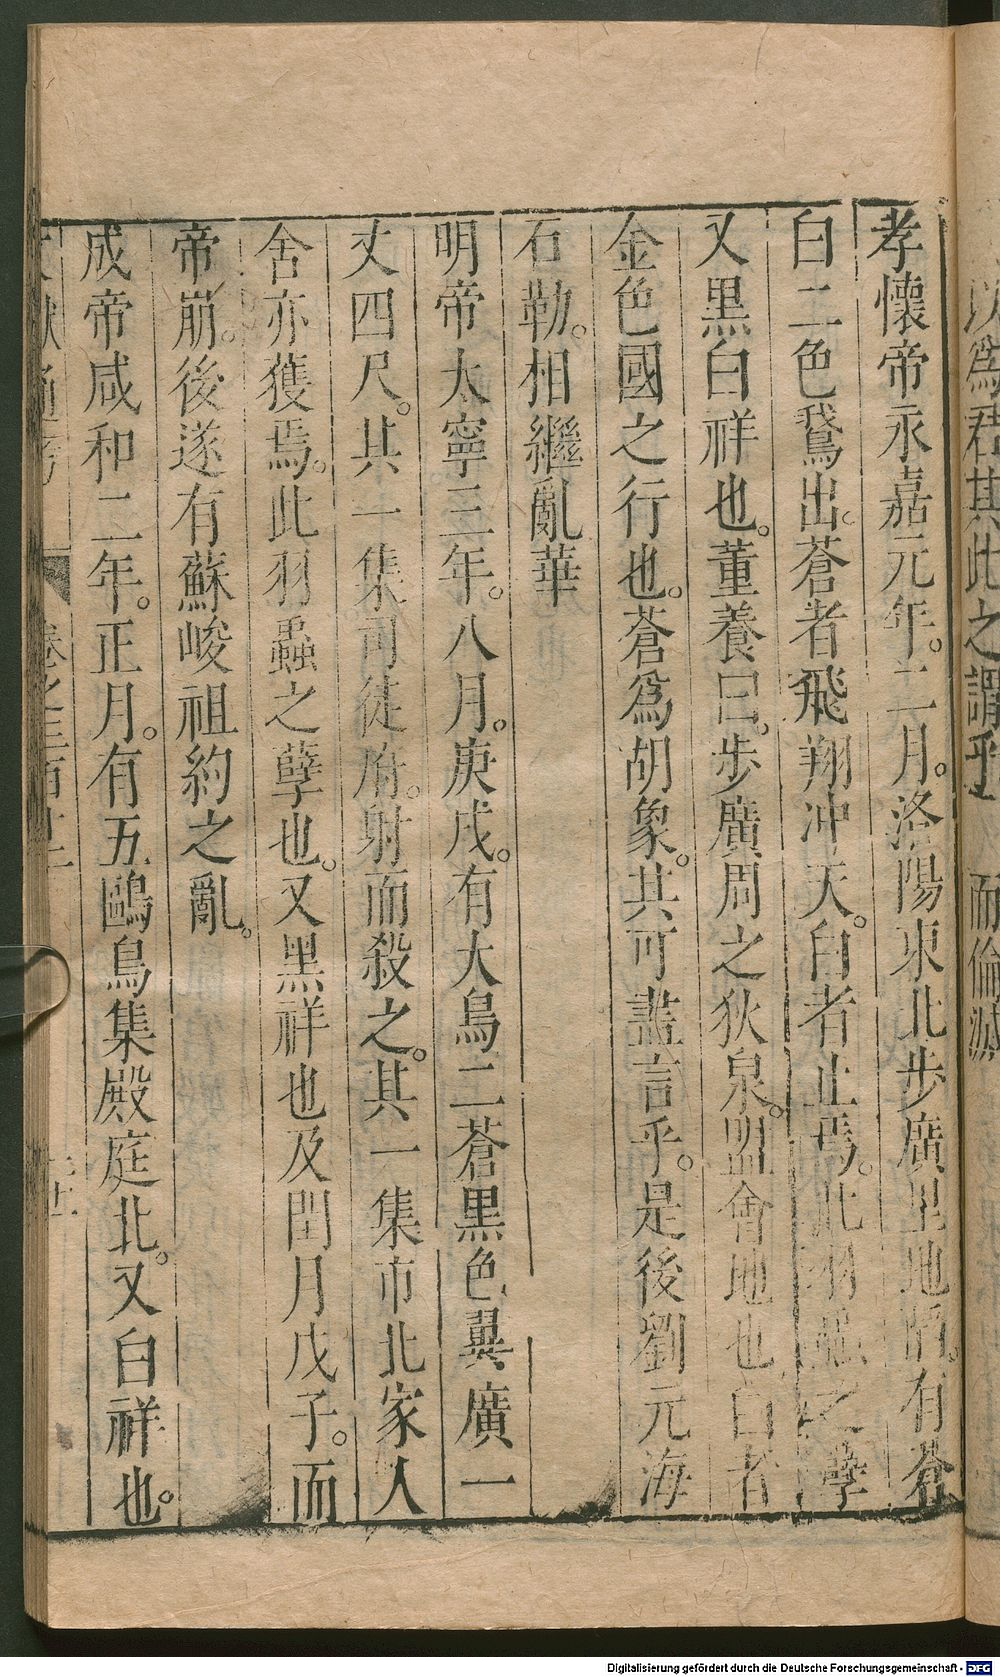 以爲君其此之謂乎 而倫滅
孝懷帝永嘉元年二月洛陽東北步廣里地陷有蒼
白二色鵞出蒼者飛翔冲天白者止焉此羽蟲之孽
又黑白祥也董養曰步廣周之狄泉盟會地也白者
金色國之行也蒼爲胡象其可盡言乎是後劉元海
石勒相繼亂華
明帝太寧三年八月庚戌有大鳥二蒼黑色翼廣一
丈四尺其一集司徒府射而殺之其一集市北家人
舍亦獲焉此羽蟲之孽也又黑祥也及閏月戊子而
帝崩後遂有蘇峻祖約之亂
成帝咸和二年正月有五鷗鳥集殿庭北又白祥也
文獻通考 卷之三百十二
Digitalisierung gefördert durch die Deutsche Forschungsgemeinschaft - DFG